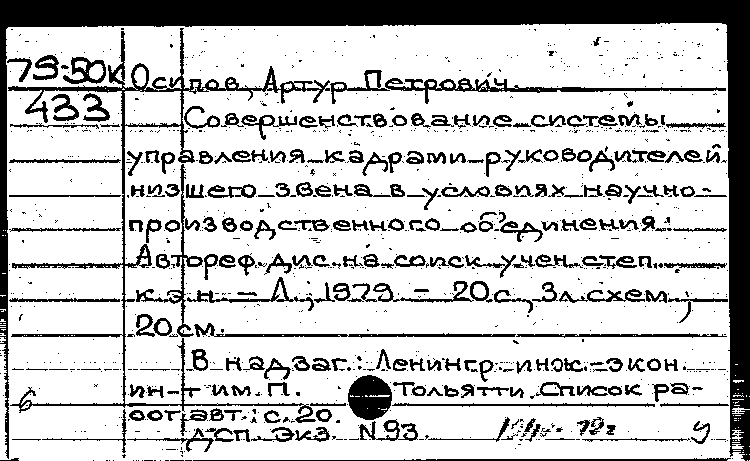 79-50к Осипов, Артур Петрович.
433 Совершенствование системы
управления кадрами руководителей
низшего звена в условиях научно-
производственного объединения:
Автореф. дис. на соиск учен. степ.
к.э.н. — Л., 1979 – 20с., 3л. схем.;
20 см.
В надзаг.: Ленингр. инж.-экон.
6 ин-т им. П. Тольятти. Список ра-
бот авт.: с. 20.
ДСП. Экз. N 93. у